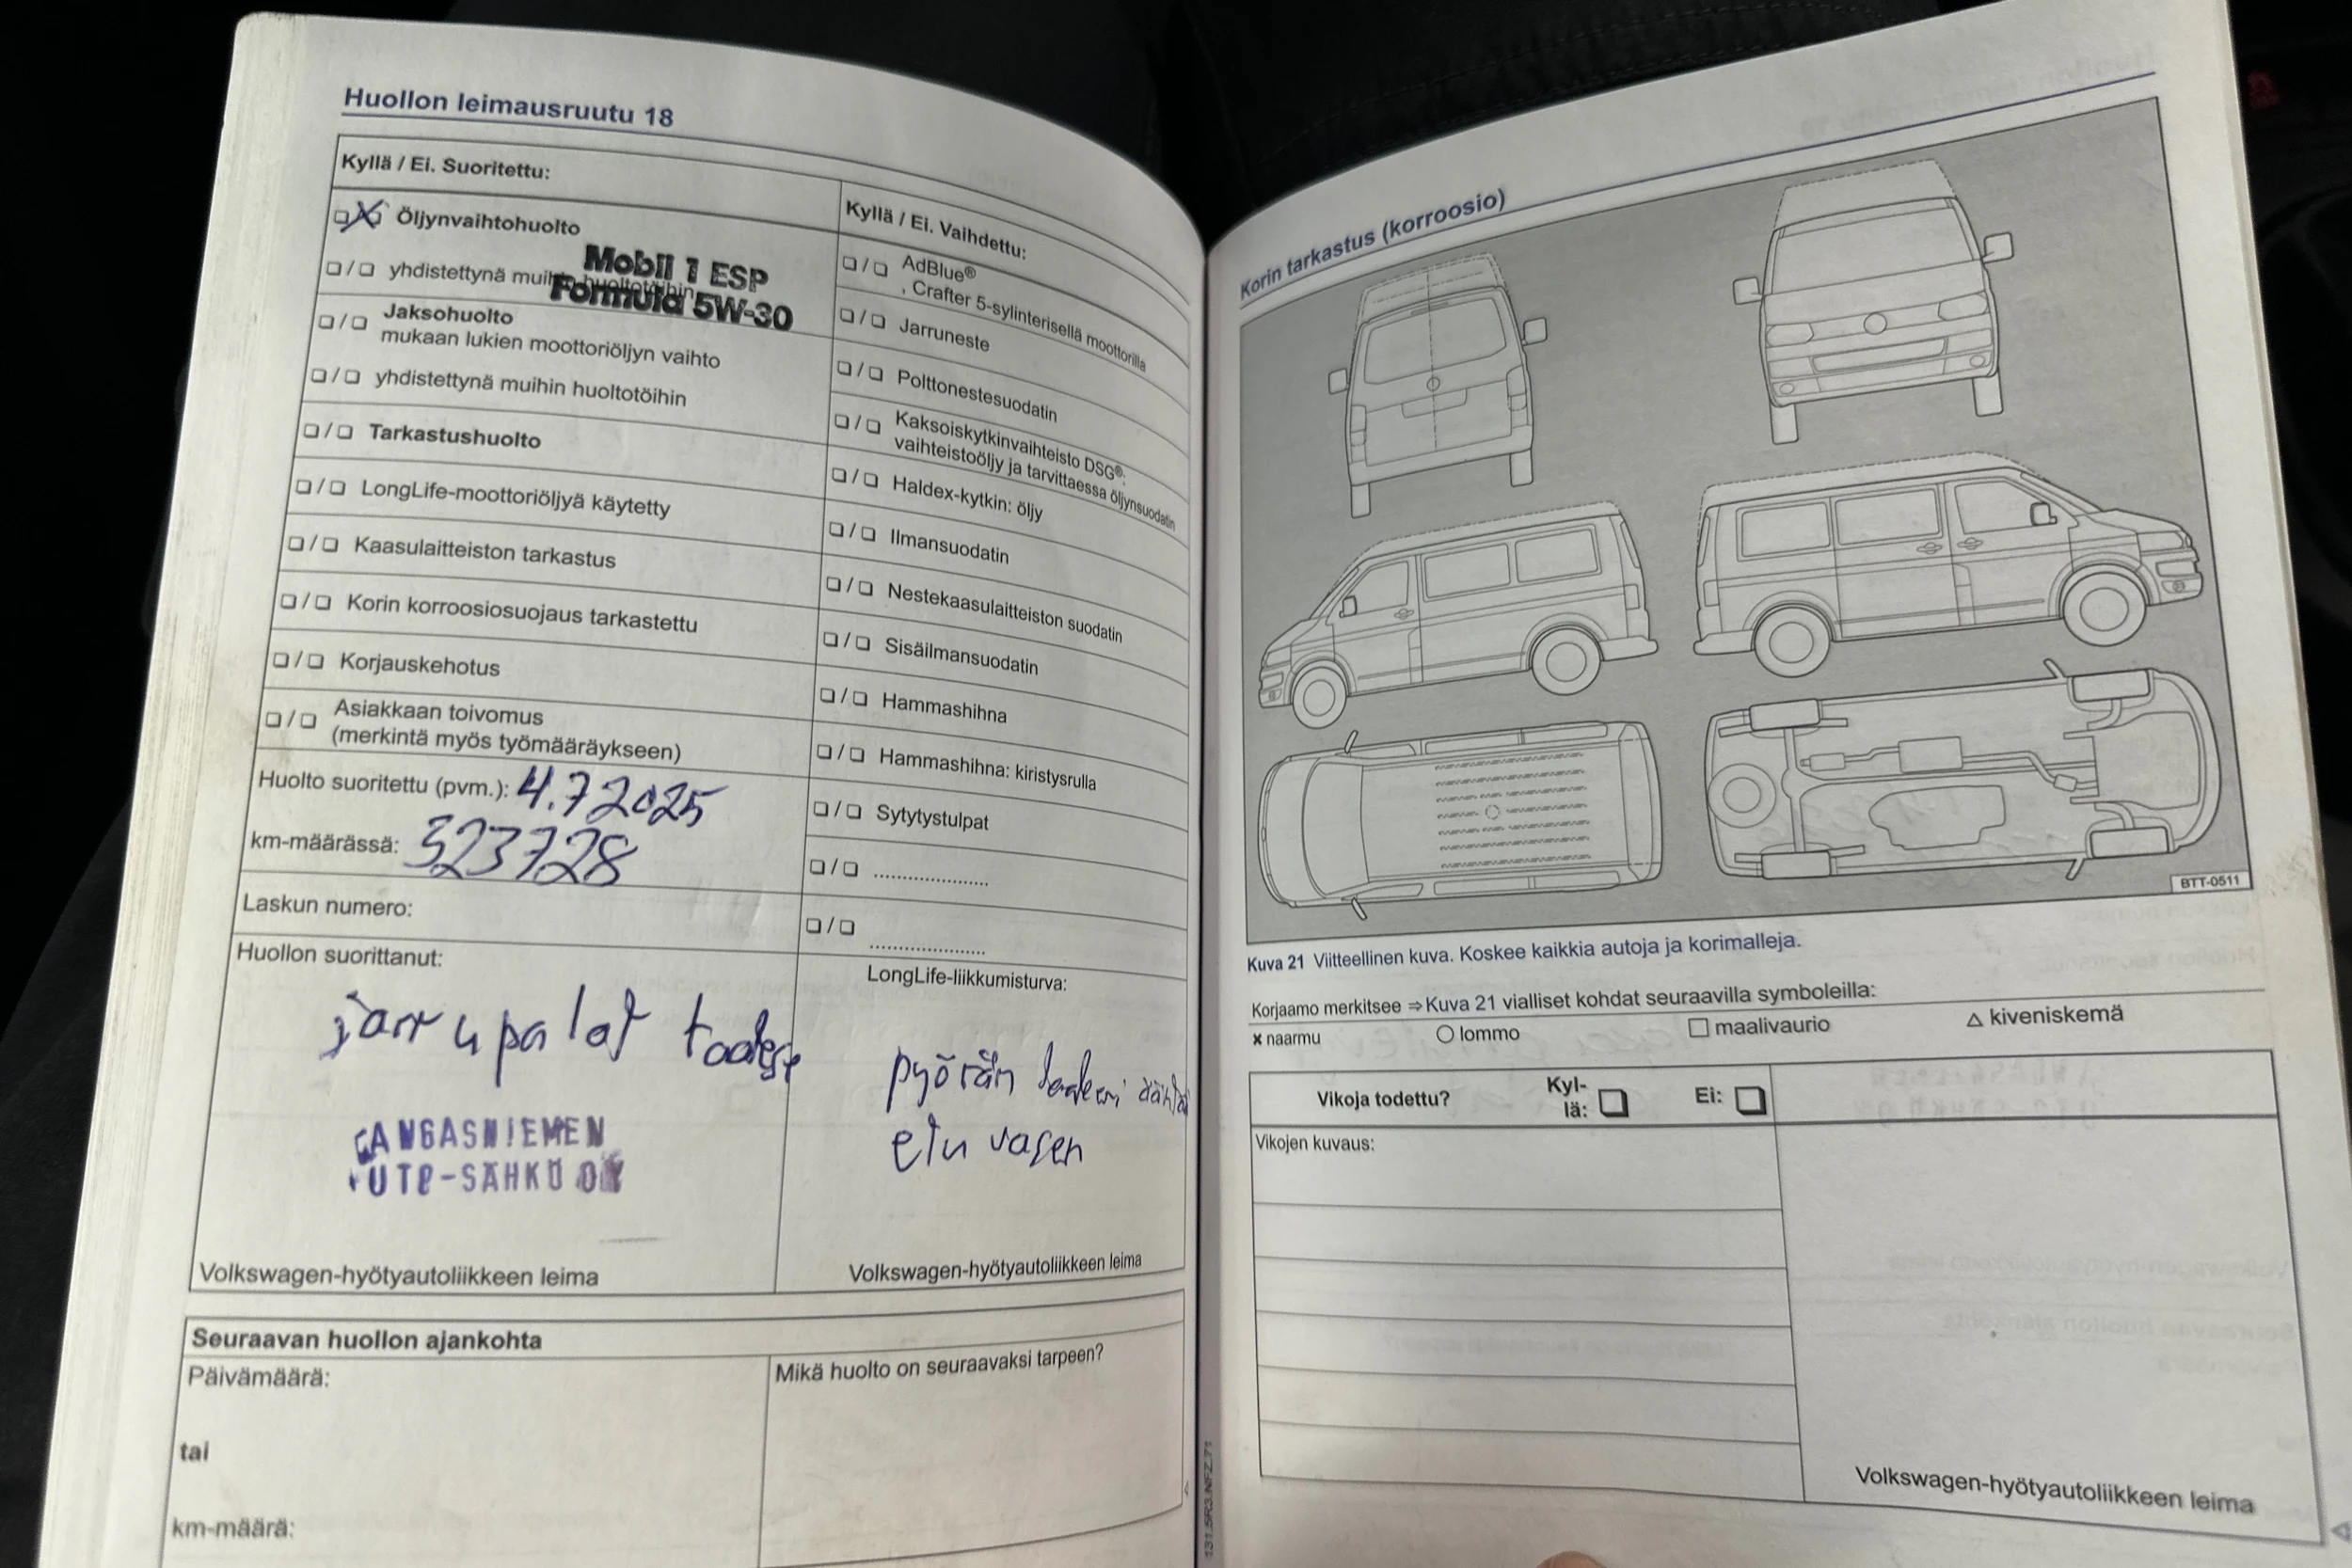 Huollon leimausruutu 18
Kyllä / Ei. Suoritettu:
❏/❏ Öljynvaihtohuolto
Mobil 1 ESP
Formula 5W-30
❏/❏ yhdistettynä muihin huoltotöihin
❏/❏ Jaksohuolto
mukaan lukien moottoriöljyn vaihto
❏/❏ yhdistettynä muihin huoltotöihin
❏/❏ Tarkastushuolto
❏/❏ LongLife-moottoriöljyä käytetty
❏/❏ Kaasulaitteiston tarkastus
❏/❏ Korin korroosiosuojaus tarkastettu
❏/❏ Korjauskehotus
❏/❏ Asiakkaan toivomus
(merkintä myös työmääräykseen)
Huolto suoritettu (pvm.): 4.7 2025
km-määrässä: 323728
Laskun numero:
Huollon suorittanut:
jarrupalat taakse
ANGASNIEMEN
UTO-SÄHKÖ OY
Volkswagen-hyötyautoliikkeen leima
Kyllä / Ei. Vaihdettu:
❏/❏ AdBlue®
, Crafter 5-sylinterisellä moottorilla
❏/❏ Jarruneste
❏/❏ Polttonestesuodatin
❏/❏ Kaksoiskytkinvaihteisto DSG®:
vaihteistoöljy ja tarvittaessa öljynsuodatin
❏/❏ Haldex-kytkin: öljy
❏/❏ Ilmansuodatin
❏/❏ Nestekaasulaitteiston suodatin
❏/❏ Sisäilmansuodatin
❏/❏ Hammashihna
❏/❏ Hammashihna: kiristysrulla
❏/❏ Sytytystulpat
❏/❏ .....................
❏/❏ .....................
LongLife-liikkumisturva:
pyörän
etu vasen
Volkswagen-hyötyautoliikkeen leima
Seuraavan huollon ajankohta
Päivämäärä:
tai
km-määrä:
Mikä huolto on seuraavaksi tarpeen?
131.5R3.NFZ.71
Korin tarkastus (korroosio)
BTT-0511
Kuva 21 Viitteellinen kuva. Koskee kaikkia autoja ja korimalleja.
Korjaamo merkitsee ⇒ Kuva 21 vialliset kohdat seuraavilla symboleilla:
x naarmu ○ lommo □ maalivaurio △ kiveniskemä
Vikoja todettu? Kyl-
lä: ❏ Ei: ❏
Vikojen kuvaus:
Volkswagen-hyötyautoliikkeen leima